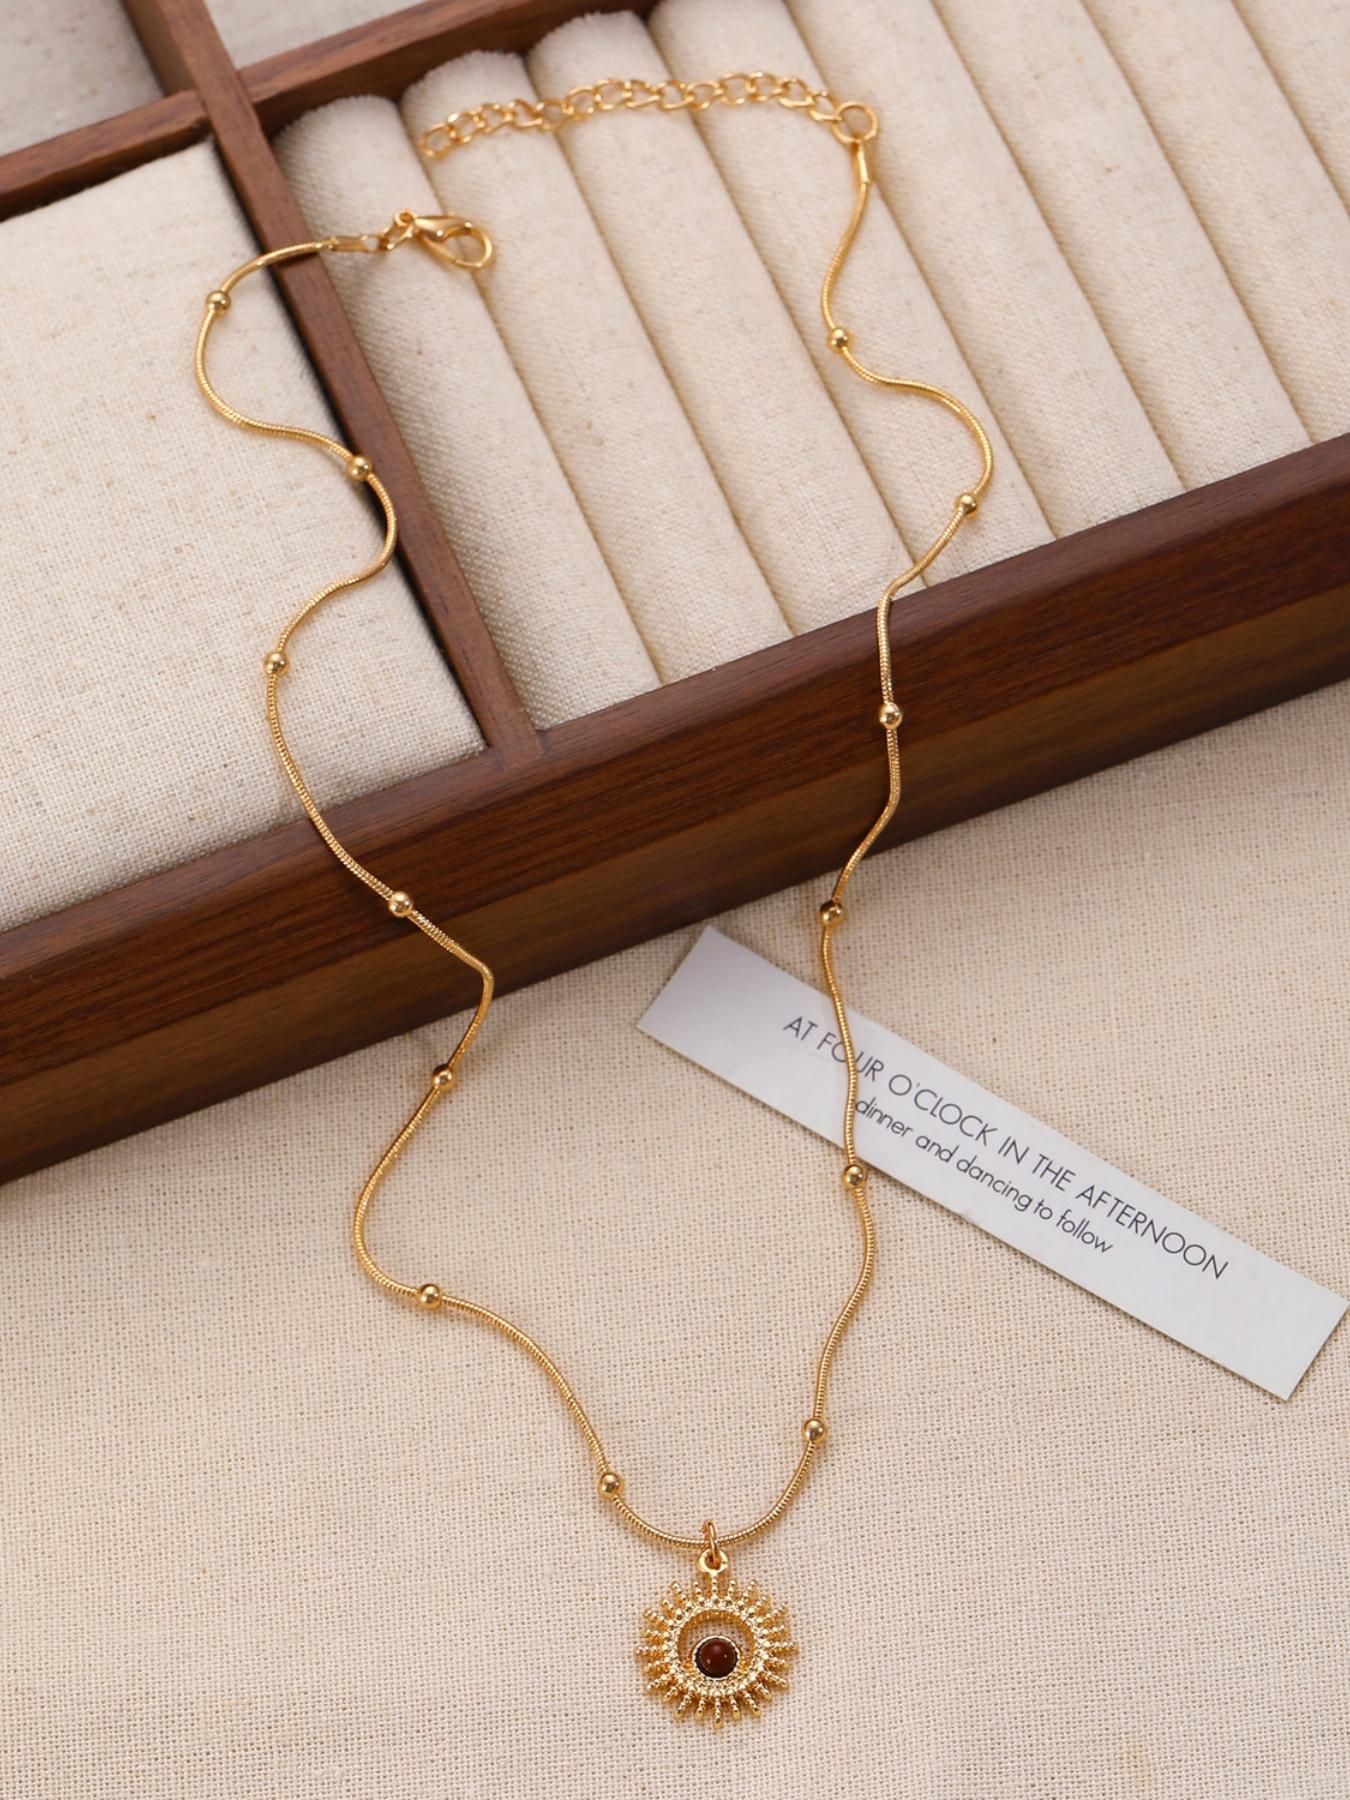 AT FOUR O'CLOCK IN THE AFTERNOON
dinner and dancing to follow